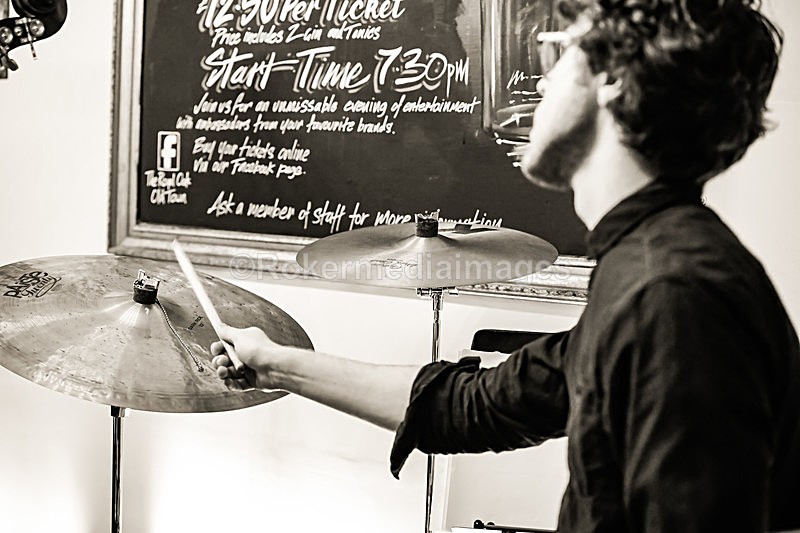 £12.50 Per Ticket
Price includes 2 Gin and Tonics
Start Time 7:30pm
Join us for an unmissable evening of entertainment
with ambassadors from your favourite brands.
Buy your tickets online
Via our Facebook page.
f
The Royal Oak
Old Town
Ask a member of staff for more information
©Rokermediaimages
PAISTE